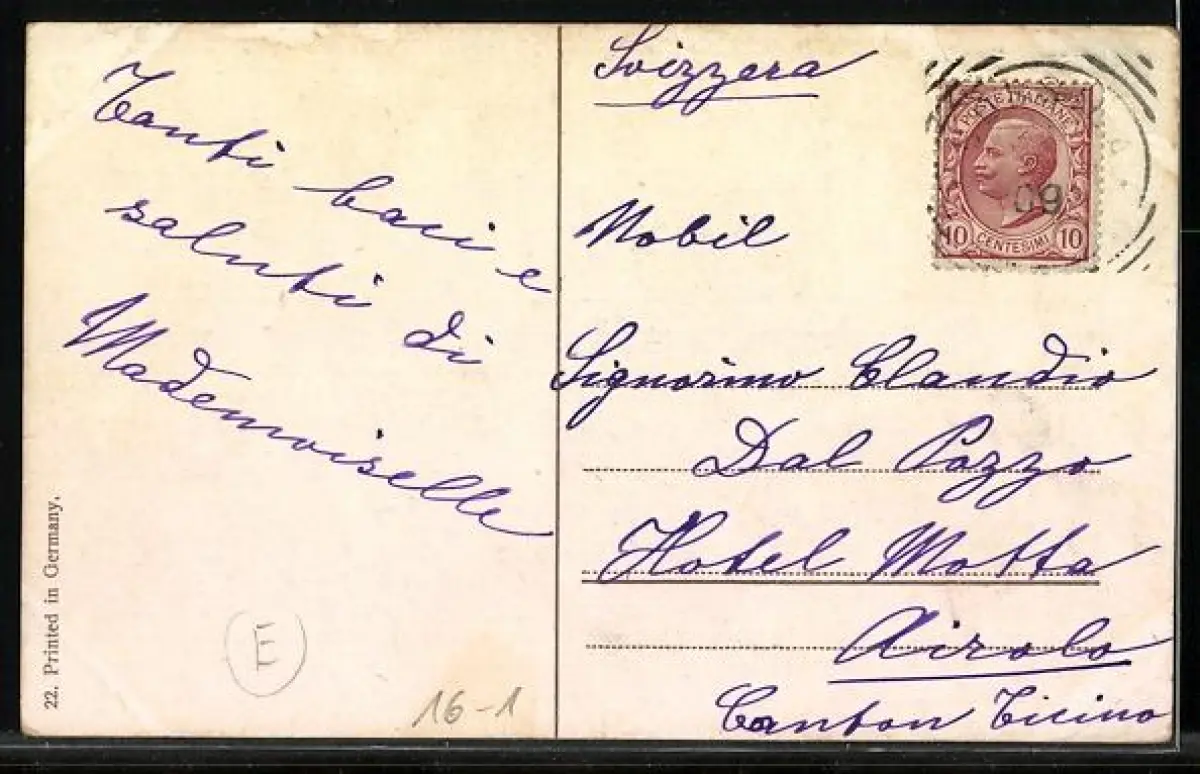 Tanti baci e
saluti di
Mademoiselle
22. Printed in Germany.
E
16-1
Svizzera
POSTE ITALIANE
09
10 CENTESIMI 10
Nobil
Signorino Claudio
Dal Pozzo
Hotel Motta
Airolo
Canton Ticino